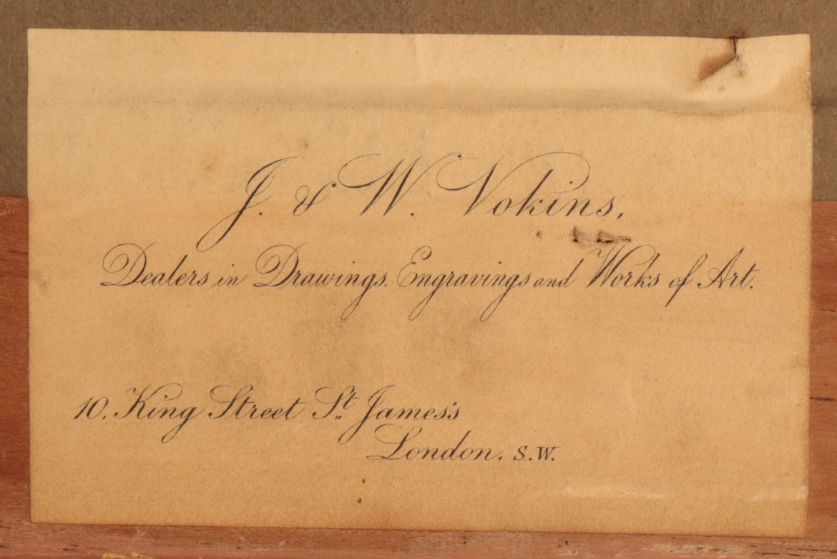 J. & W. Vokins.
Dealers in Drawings, Engravings and Works of Art.
10. King Street St. James's
London. S.W.